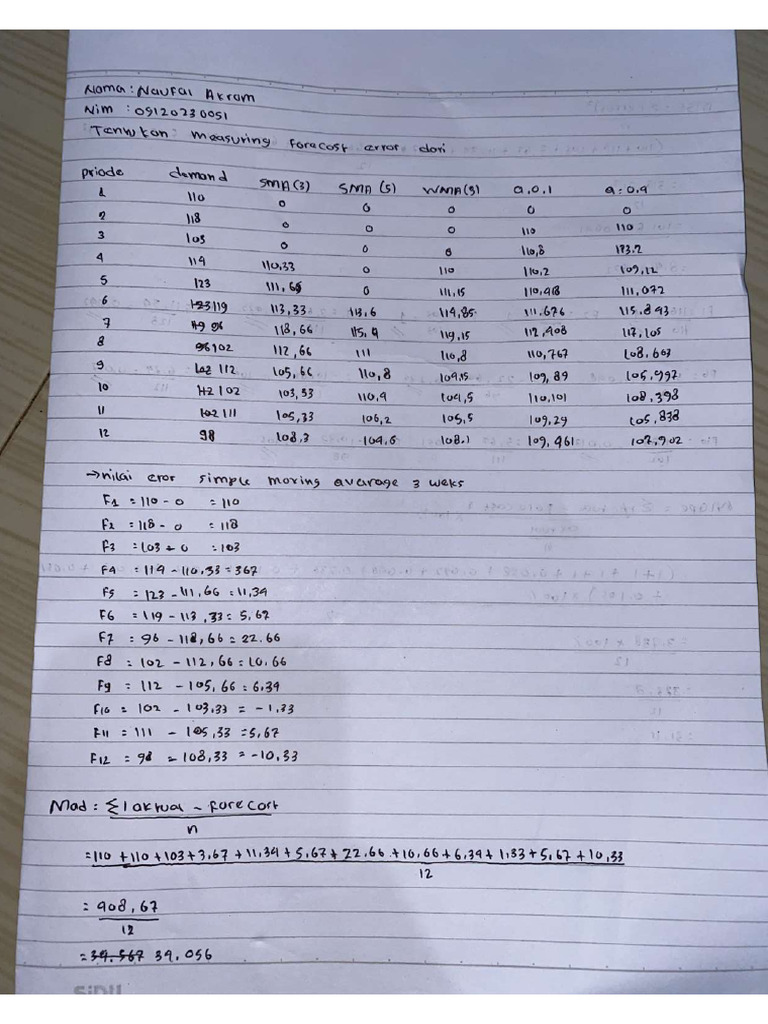 Nama : Naufal Akram
Nim : 09120230051
Tentukan : measuring forecast error dari
priode demand SMA (3) SMA (5) WMA (3) a.0.1 a : 0.9
1 110 0 0 0 0 0
2 118 0 0 0 110 110
3 103 0 0 0 110,8
4 114 110,33 0 110 110,2 109,12
5 123 111,66 0 111,15 110,418 111,072
6 123 119 113,33 113,6 114,85 111.676 115.843
7 119 96 118,66 115,4 119,15 112,408 117,105
8 96 102 112,66 111 110,8 110,767 108,663
9 102 112 105,66 110,8 104,15 109,89 105,997
10 112 102 103,33 110,4 104,5 110,101 108,398
11 102 111 105,33 106,2 105,5 109,29 105,838
12 98 108,3 104,6 108.1 109,461 107,902
→ nilai eror simple moving average 3 weks
F1 = 110 - 0 = 110
F2 = 118 - 0 = 118
F3 = 103 - 0 = 103
F4 = 114 - 110,33 = 367
F5 = 123 - 111,66 = 11,34
F6 = 119 - 113,33 = 5,67
F7 = 96 - 118,66 = 22.66
F8 = 102 - 112,66 = 10.66
F9 = 112 - 105,66 = 6,34
F10 = 102 - 103,33 = -1,33
F11 = 111 - 105,33 = 5,67
F12 = 98 - 108,33 = -10,33
Mad : Σ | aktual - Forecast
n
= 110 + 110 + 103 + 3,67 + 11,34 + 5,67 + 22,66 + 10,66 + 6,34 + 1,33 + 5,67 + 10,33
12
= 408,67
12
= 34.567 34,056
SiDU